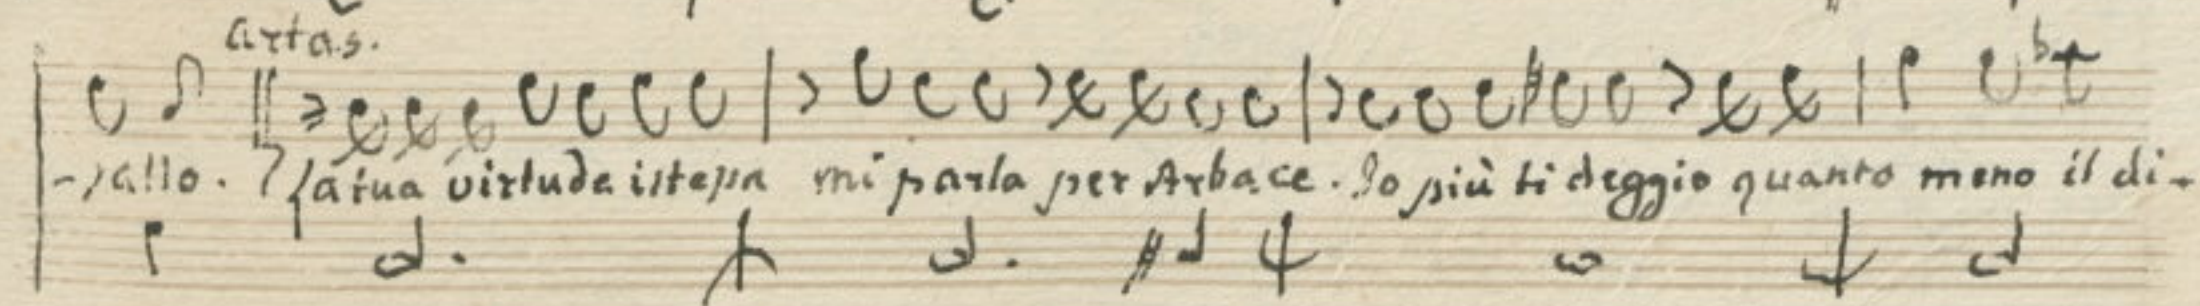 artas.
-sallo. La tua virtude istessa mi parla per Arbace. Io più ti deggio quanto meno il di-